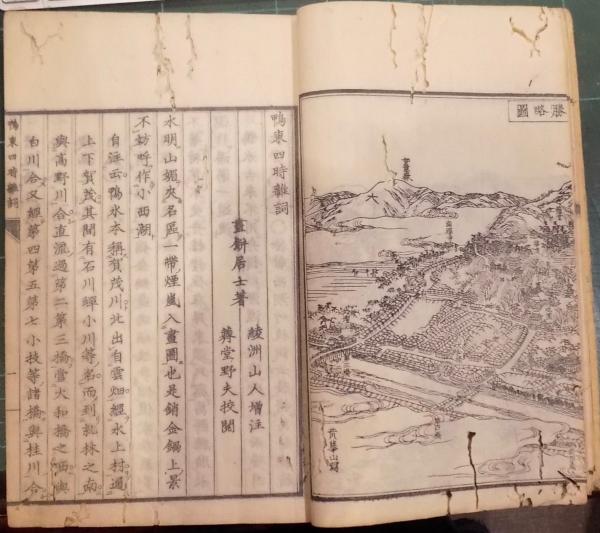 勝略圖
鴨東四時雜詞
畫餅居士著
綾洲山人增注
蕣堂野夫挍閱
水明山媚夾名區一帶煙嵐入畫圖也是銷金鍋上景
不妨呼作小西湖
自注云鴨水本稱賀茂川北出自雲畑經水上村過
上下賀茂其間有石川蟬小川等名而到糺林之南
與高野川合直流過第二第三橋當大和橋之西與
白川合又經第四第五第七小枝等諸橋與桂川合
鴨東四時雜詞
一